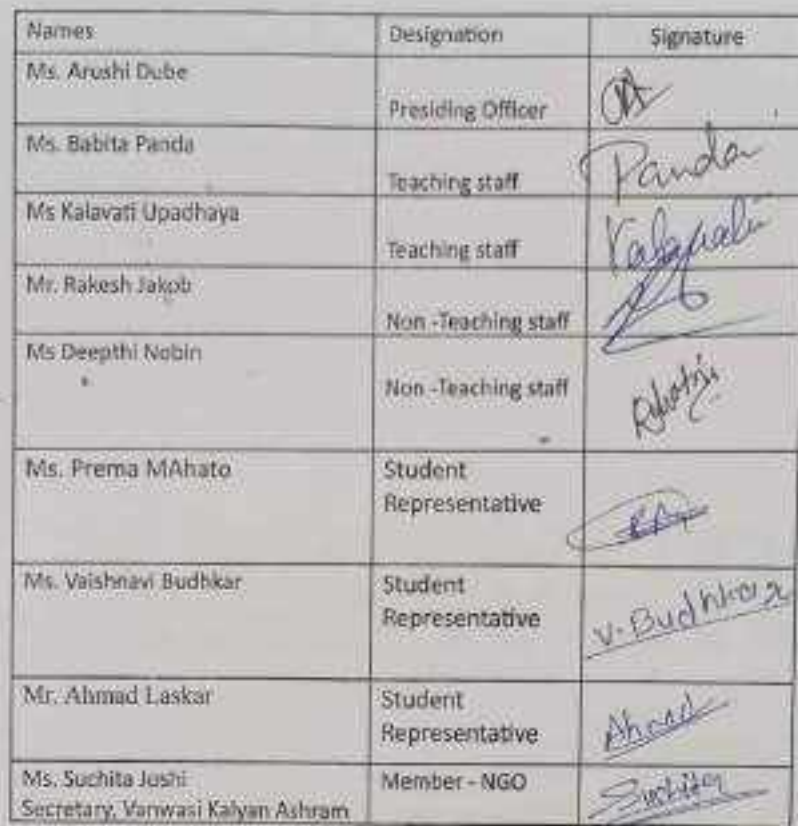 Names Designation Signature
Ms. Arushi Dube
Presiding Officer
Ms. Babita Panda
Teaching staff Panda
Ms Kalavati Upadhaya
Teaching staff Kalavati
Mr. Rakesh Jakob
Non -Teaching staff
Ms Deepthi Nobin
Non -Teaching staff
Ms. Prema MAhato Student
Representative
Ms. Vaishnavi Budhkar Student
Representative V. Budhkar
Mr. Ahmad Laskar Student
Representative Ahmad
Ms. Suchita Joshi Member - NGO Suchita
Secretary, Vanwasi Kalyan Ashram